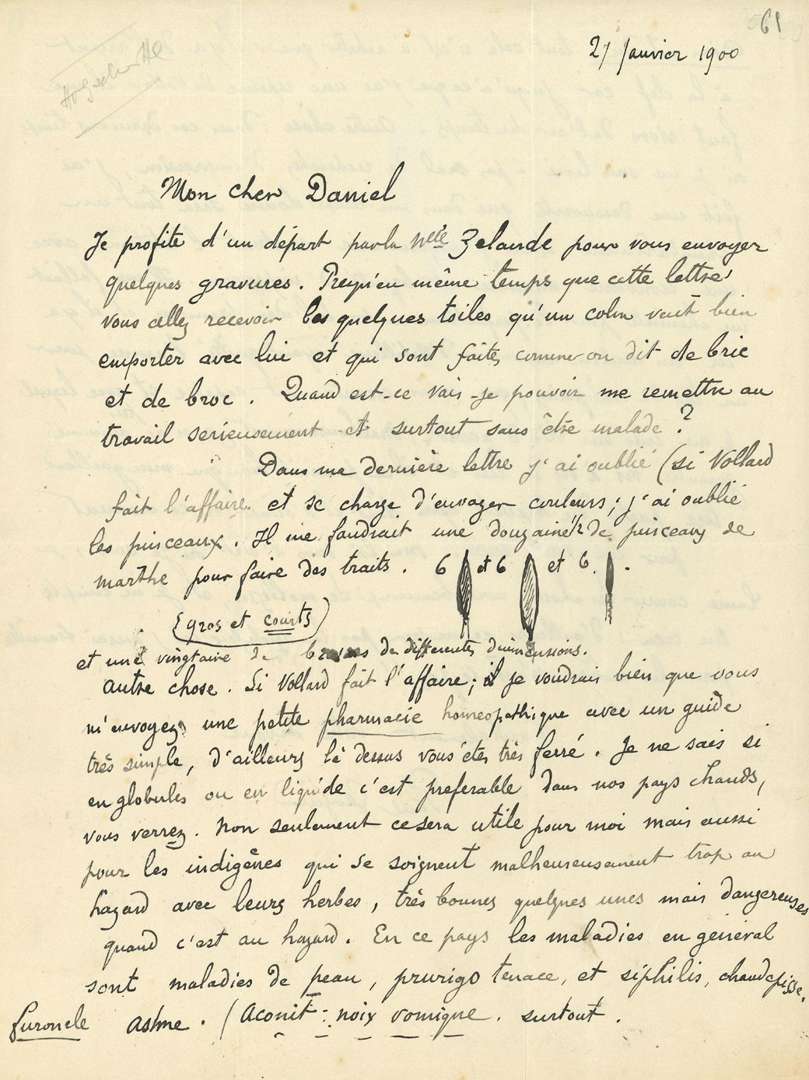 61
27 Janvier 1900
Mon cher Daniel
Je profite d'un départ par la Nelle Zelande pour vous envoyer
quelques gravures. Presqu'en même temps que cette lettre
vous allez recevoir les quelques toiles qu'un colon veut bien
emporter avec lui et qui sont faites comme on dit de bric
et de broc. Quand est-ce vais-je pouvoir me remettre au
travail serieusement et surtout sans être malade ?
Dans ma dernière lettre j'ai oublié (si Vollard
fait l'affaire et se charge d'envoyer couleurs; j'ai oublié
les pinceaux. Il me faudrait une douzaine 1/2 de pinceaux de
marthe pour faire des traits. 6 et 6 et 6.
(gros et courts)
et une vingtaine de brosses de differentes dimensions.
Autre chose. Si Vollard fait l'affaire; je voudrais bien que vous
m'envoyez une petite pharmacie homeopathique avec un guide
très simple, d'ailleurs là dessus vous êtes très ferré. Je ne sais si
en globules ou en liquide c'est preferable dans nos pays chauds,
vous verrez. Non seulement ce sera utile pour moi mais aussi
pour les indigènes qui se soignent malheureusement trop au
hazard avec leurs herbes, très bonnes quelques unes mais dangereuses
quand c'est au hazard. En ce pays les maladies en general
sont maladies de peau, prurigo tenace, et siphilis, chaudepisse,
furoncle asthme. (Aconit - noix vomique. surtout.